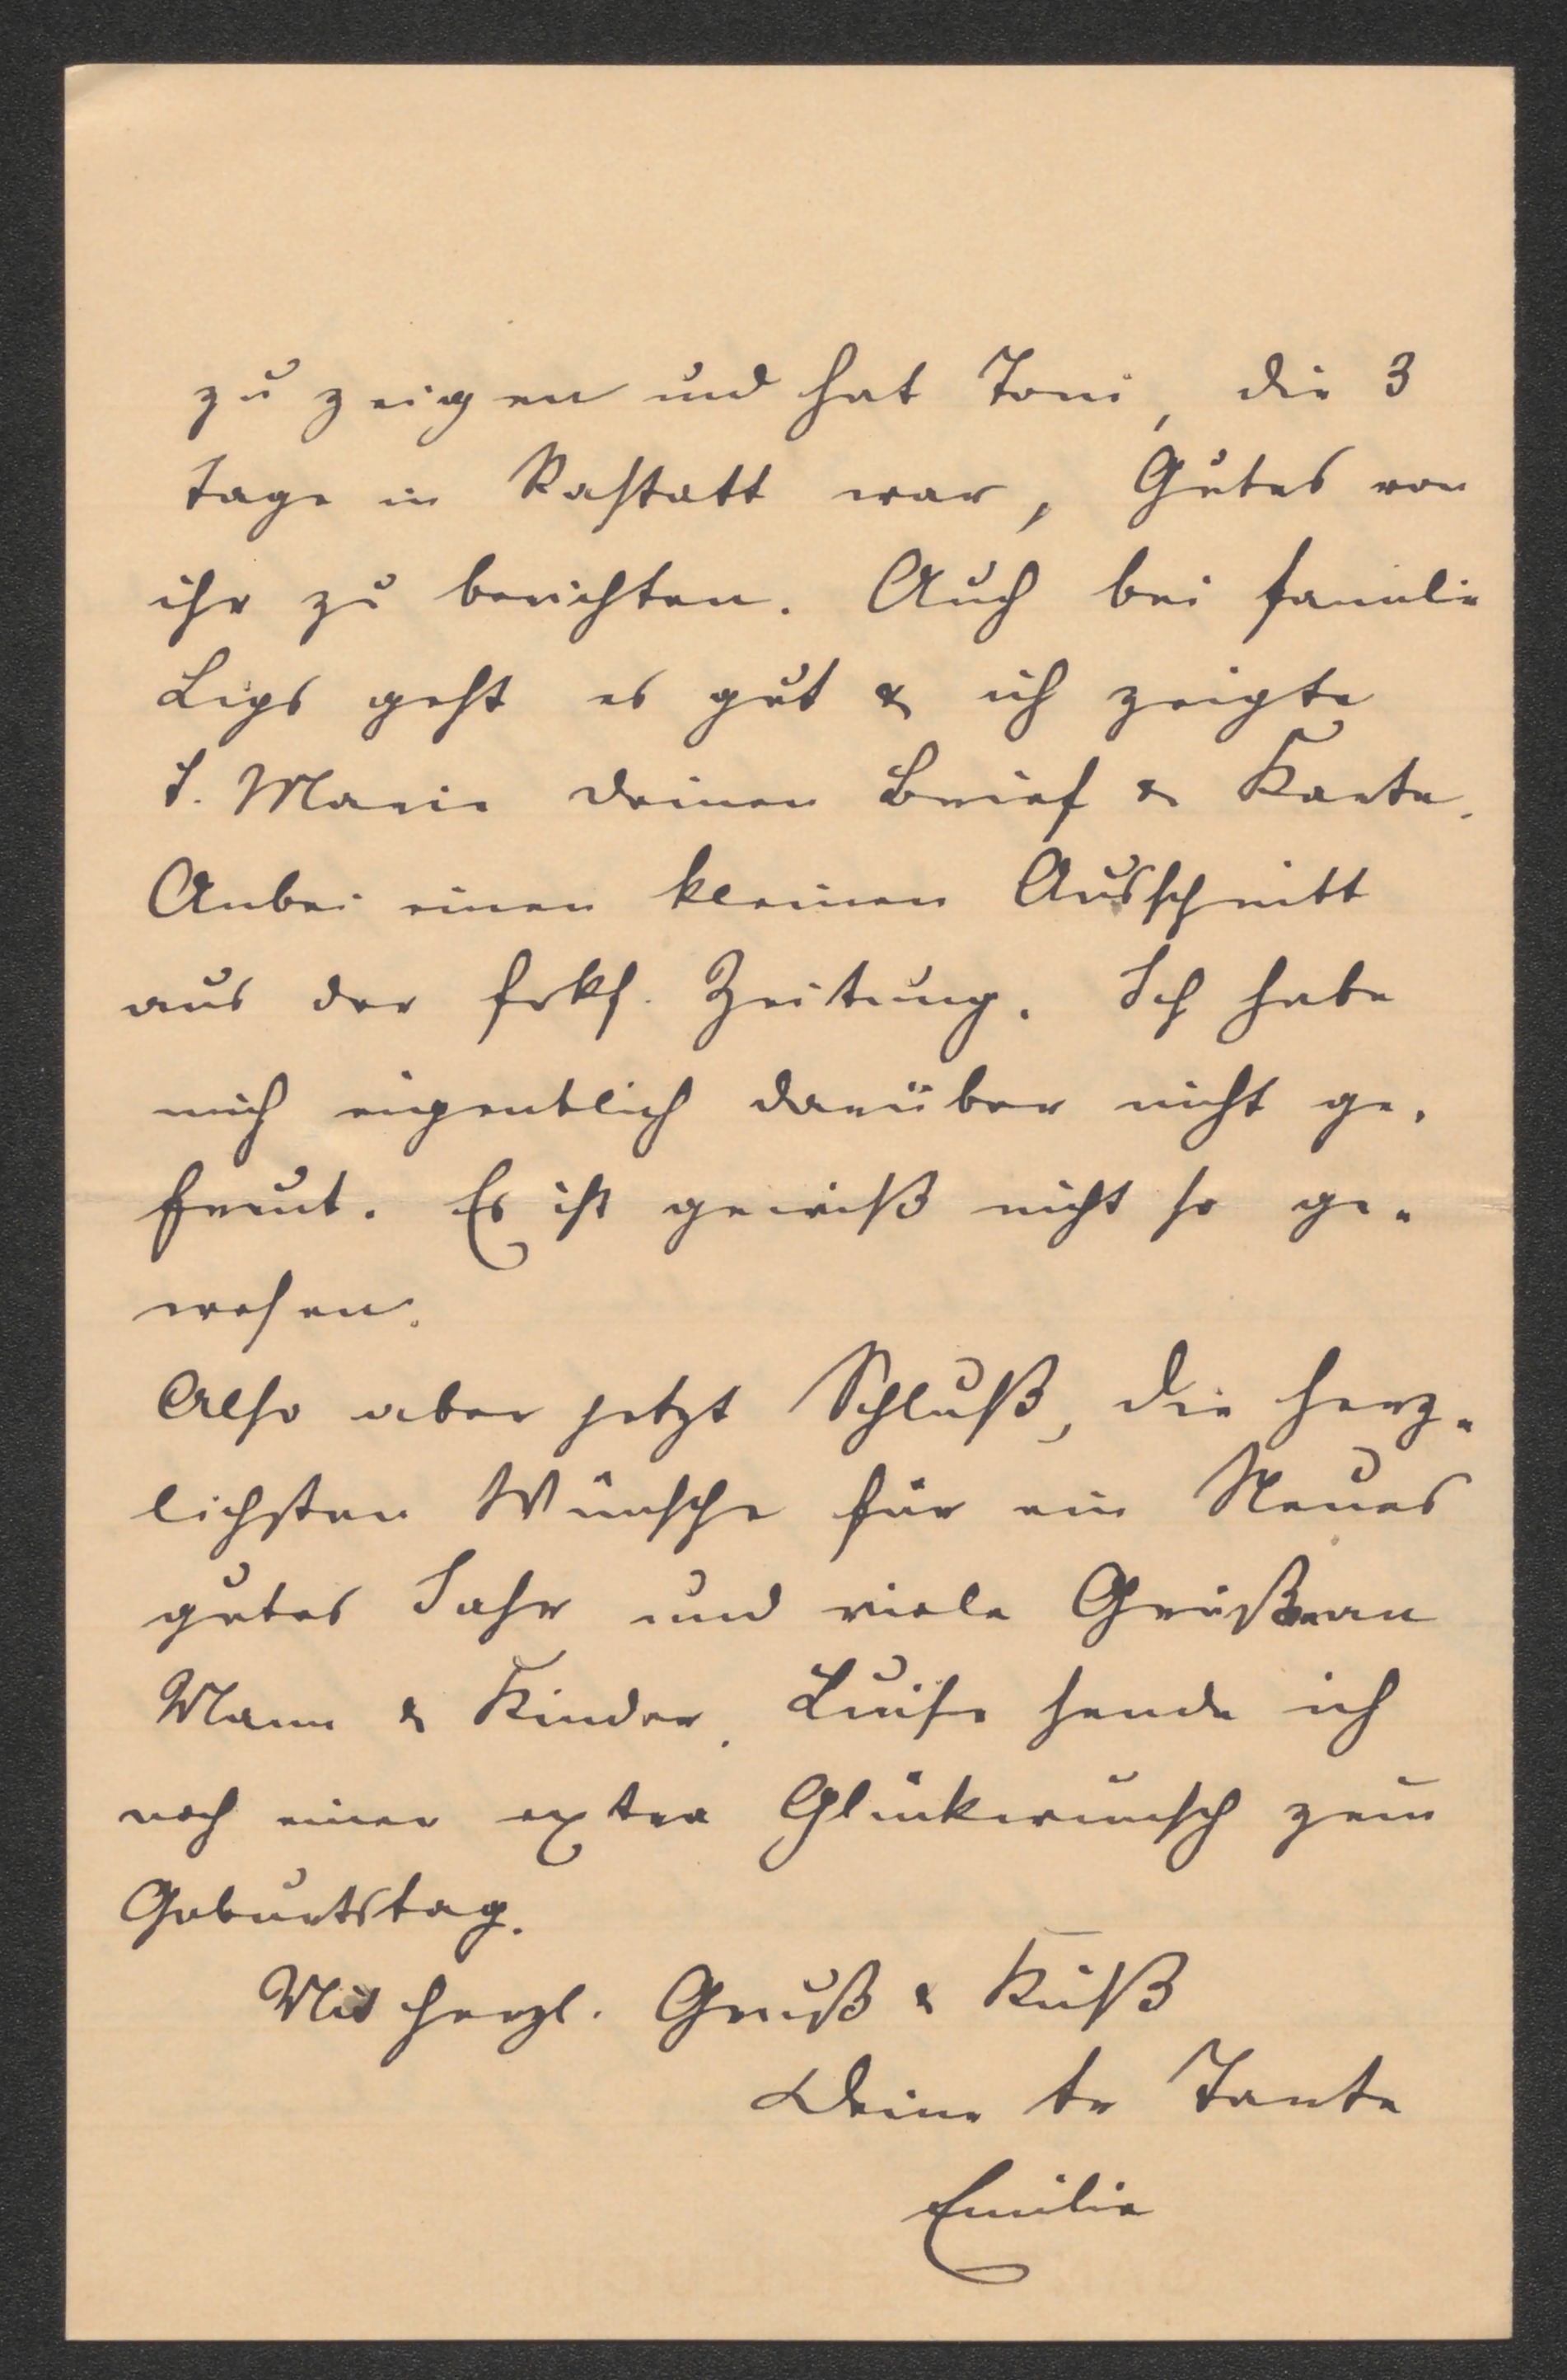 zu zeigen und hat Toni, die 3
Tage in Rastatt war, Gutes von
ihr zu berichten. Auch bei Familie
Lips geht es gut & ich zeigte
T. Marie deinen Brief & Karte.
Anbei einen kleinen Ausschnitt
aus der Frkf. Zeitung. Ich habe
mich eigentlich darüber nicht ge-
freut. Es ist gewiß nicht so ge-
wesen.
Also aber jetzt Schluß, die herz-
lichsten Wünsche für ein Neues
gutes Jahr und viele Grüße an
Mann & Kinder. Luise sende ich
noch einen extra Glückwunsch zum
Geburtstag.
Mit herzl. Gruß & Kuß
Deine tr Tante
Emilie